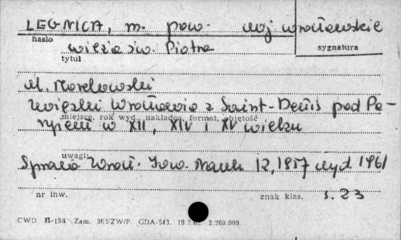 LEGNICA, m. pow. woj wrocławskie
hasło
wieża św. Piotra
tytuł
sygnatura
M. Morelowski
Związki Wrocławia z Saint-Denis pod Pa-
miejsce, rok wyd., nakładca, format, objętość
ryżem w XII, XIV i XV wieku
uwagi
Sprawo Wroc. Tow. Nauk 12, 1957 wyd 1961
nr inw.
znak klas.
s. 23
CWD Zam. 361/ZW/P. GDA-543. 2.260.000.